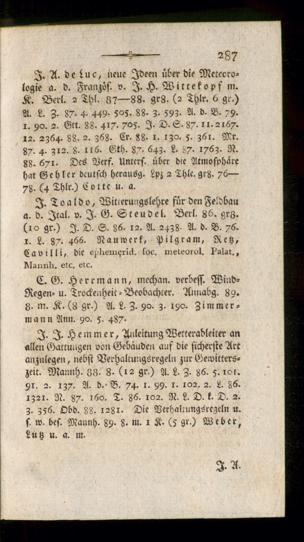 287
J. A. de Luc, neue Ideen über die Meteoro-
logie a. d. Französ. v. J. H. Wittekopf m.
K. Berl. 2 Thl. 87—88. gr8. (2 Thlr. 6 gr.)
A. L. Z. 87. 4. 449. 505. 88. 3. 593. A. d. B. 79.
1. 90. 2. Gtt. 88. 417. 705. J. D. S. 87. 11. 2167.
12. 2364. 88. 2. 368. Cr. 88. 1. 130. 5. 361. Mr.
87. 4. 312. 8. 116. Gth. 87. 643. L. 87. 1763. N.
88. 671. Des Verf. Unters. über die Atmosphäre
hat Gehler deutsch herausg. Lpz 2 Thle. gr8. 76—
78. (4 Thlr.) Cotte u. a.
J. Toaldo, Witterungslehre für den Feldbau
a. d. Ital. v. J. G. Steudel. Berl. 86. gr8.
(10 gr.) J. D. S. 86. 12. A. 2438. A. d. B. 76.
1. L. 87. 466. Nauwerk, Pilgram, Retz,
Cavilli, die ephemerid. soc. meteorol. Palat.,
Mannh. etc. etc.
C. G. Herrmann, mechan. verbess. Wind-
Regen- u. Trockenheit-Beobachter. Annabg. 89.
8. m. K. (8 gr.) A. L. Z. 90. 3. 190. Zimmer-
mann Ann. 90. 5. 487.
J. J. Hemmer, Anleitung Wetterableiter an
allen Gattungen von Gebäuden auf die sicherste Art
anzulegen, nebst Verhaltungsregeln zur Gewitters-
zeit. Mannh. 88. 8. (12 gr.) A. L. Z. 86. 5. 101.
91. 2. 137. A. d. B. 74. 1. 99. 1. 102. 2. L. 86.
1321. N. 87. 160. T. 86. 102. N. L. D. k. D. 2.
3. 356. Obd. 88. 1281. Die Verhaltungsregeln u.
s. w. bes. Mannh. 89. 8. m. 1 K. (5 gr.) Weber,
Lutz u. a. m.
J. A.